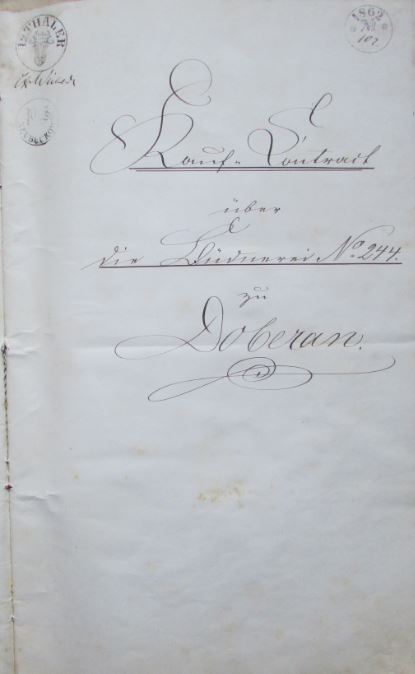 1/2 THALER
1862
Kauf=Contract
über
die Büdnerei No 244.
zu
Doberan.